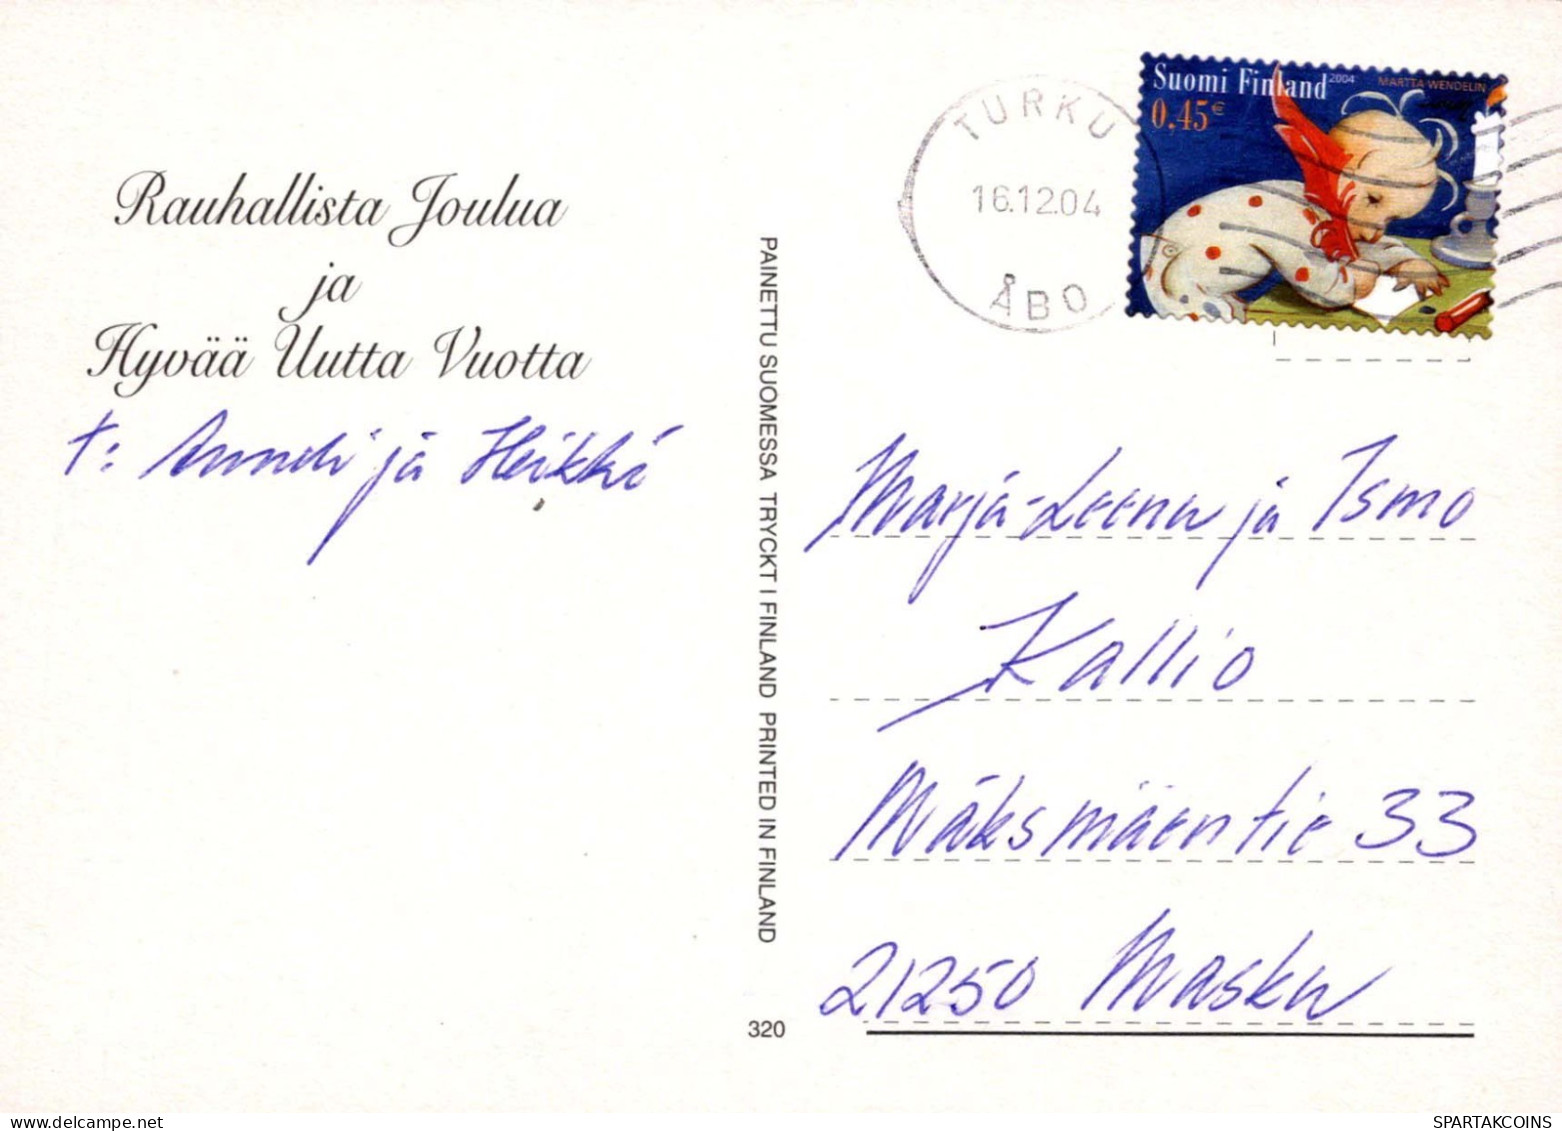 Rauhallista Joulua
ja
Hyvää Uutta Vuotta
t: Anneli ja Heikki
PAINETTU SUOMESSA TRYCKT I FINLAND PRINTED IN FINLAND
320
TURKU
16.12.04
ÅBO
Suomi Finland 2004 MARTTA WENDELIN
0,45€
Marja-Leena ja Ismo
Kallio
Mäksmäentie 33
21250 Masku
SPARTAKCOINS